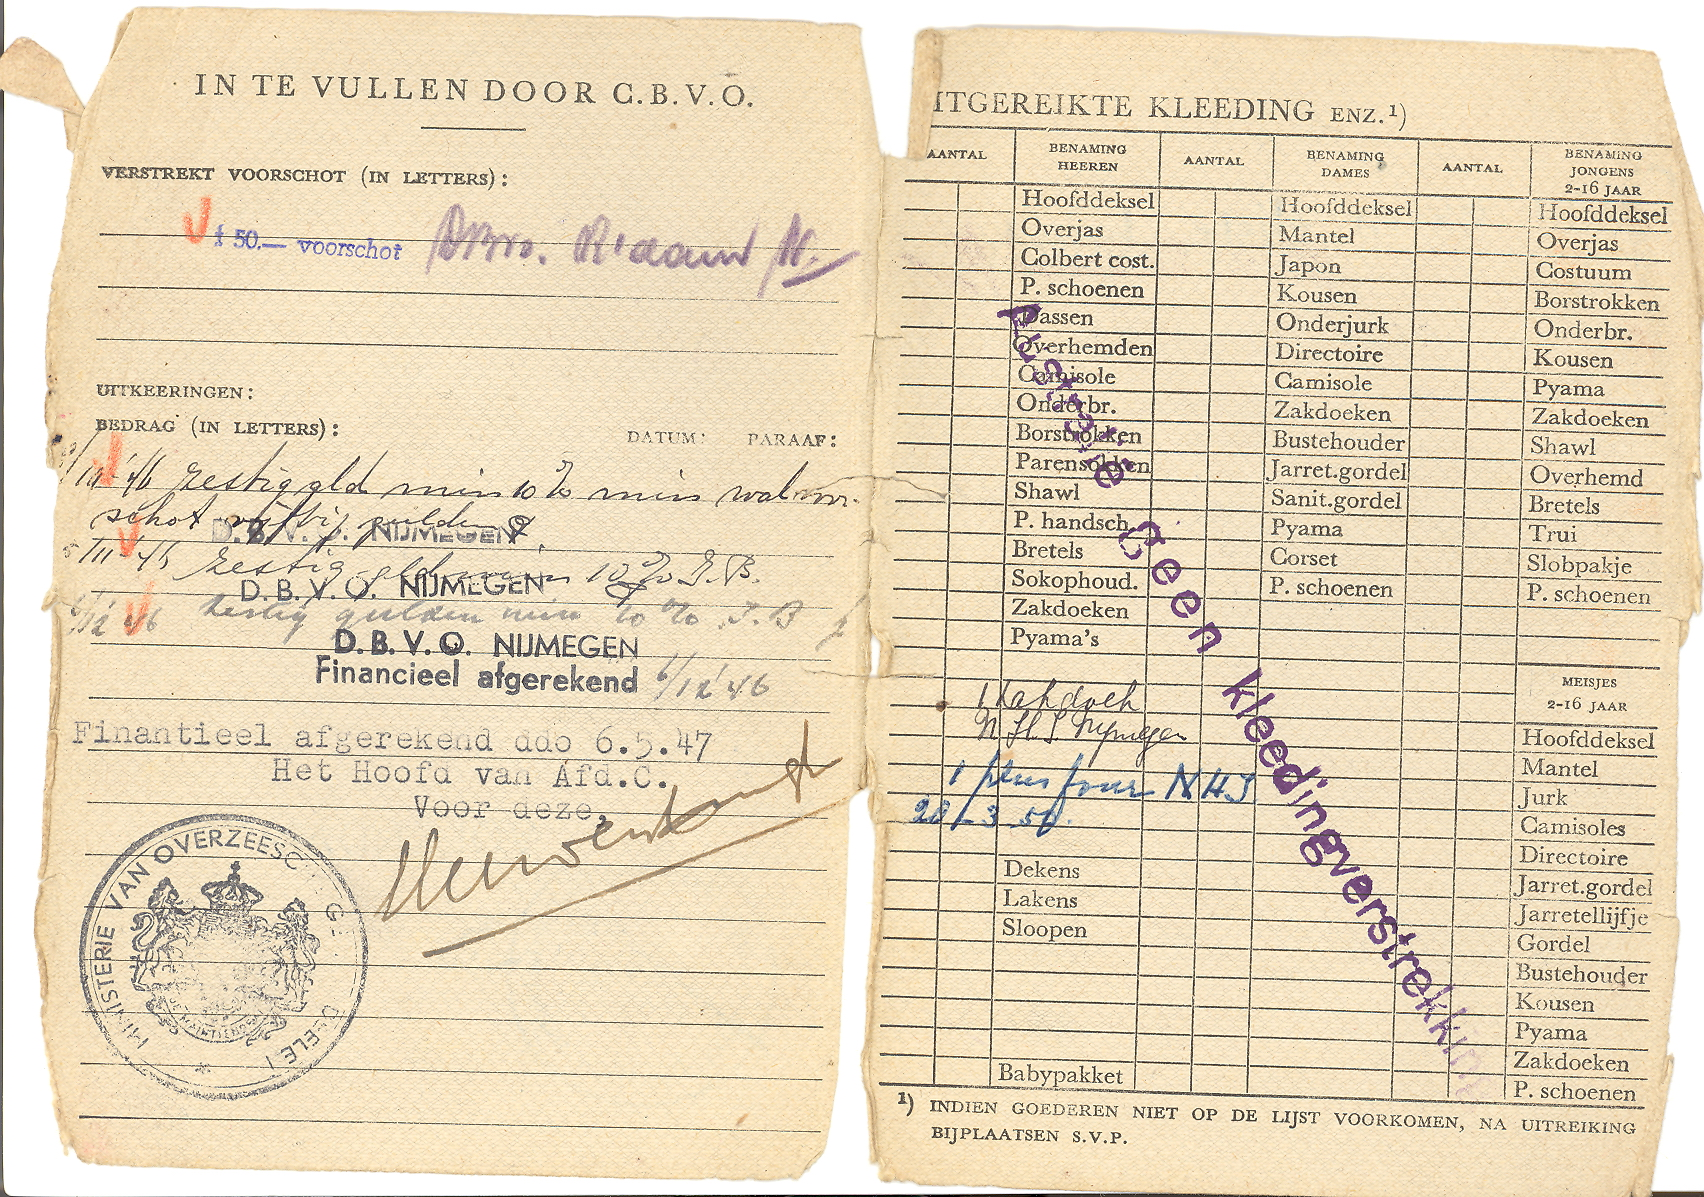 IN TE VULLEN DOOR C.B.V.O.
VERSTREKT VOORSCHOT (IN LETTERS):
f 50.— voorschot
UITKEERINGEN:
BEDRAG (IN LETTERS): DATUM: PARAAF:
III '46 zestig gld min 10 % min
schot vijftig gulden
D.B.V.O. NIJMEGEN
III '46 zestig gld min 10 % I.B.
D.B.V.O. NIJMEGEN
/12 '46 zestig gulden min 10 % I.B
D.B.V.O. NIJMEGEN
Financieel afgerekend 6/12 '46
Finantieel afgerekend ddo 6.5.47
Het Hoofd van Afd.C.
Voor deze,
MINISTERIE VAN OVERZEESCHE G DEELEN
JE MAINTIENDRAI
ITGEREIKTE KLEEDING ENZ.¹)
AANTAL BENAMING HEEREN AANTAL BENAMING DAMES AANTAL BENAMING JONGENS 2-16 JAAR
Hoofddeksel Hoofddeksel Hoofddeksel
Overjas Mantel Overjas
Colbert cost. Japon Costuum
P. schoenen Kousen Borstrokken
Dassen Onderjurk Onderbr.
Overhemden Directoire Kousen
Camisole Camisole Pyama
Onderbr. Zakdoeken Zakdoeken
Borstrokken Bustehouder Shawl
Parensokken Jarret.gordel Overhemd
Shawl Sanit.gordel Bretels
P. handsch. Pyama Trui
Bretels Corset Slobpakje
Sokophoud. P. schoenen P. schoenen
Zakdoeken
Pyama's
MEISJES
2-16 JAAR
1 zakdoek
N H S Nymegen
Hoofddeksel
Mantel
1 plus four N H S
Jurk
28/3 50.
Camisoles
Directoire
Dekens Jarret.gordel
Lakens Jarretellijfje
Sloopen Gordel
Bustehouder
Kousen
Pyama
Zakdoeken
Babypakket P. schoenen
Geen kleedingverstrekking
¹) INDIEN GOEDEREN NIET OP DE LIJST VOORKOMEN, NA UITREIKING
BIJPLAATSEN S.V.P.